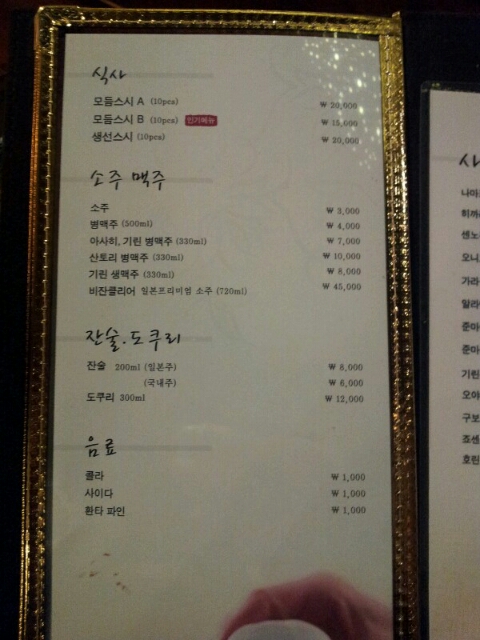 식사
모듬스시 A (10pcs) ₩ 20,000
모듬스시 B (10pcs) 인기메뉴 ₩ 15,000
생선스시 (10pcs) ₩ 20,000
소주 맥주
소주 ₩ 3,000
병맥주 (500ml) ₩ 4,000
아사히, 기린 병맥주 (330ml) ₩ 7,000
산토리 병맥주 (330ml) ₩ 10,000
기린 생맥주 (330ml) ₩ 8,000
비잔클리어 일본프리미엄 소주 (720ml) ₩ 45,000
잔술.도쿠리
잔술 200ml (일본주) ₩ 8,000
(국내주) ₩ 6,000
도쿠리 300ml ₩ 12,000
음료
콜라 ₩ 1,000
사이다 ₩ 1,000
환타 파인 ₩ 1,000